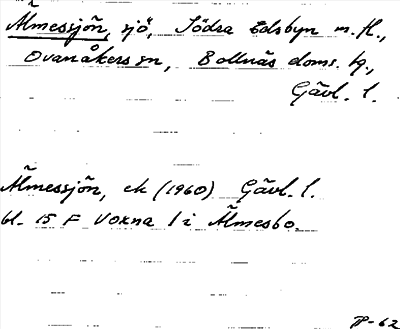 Älmessjön, sjö, Södra Edsbyn m.fl.,
Ovanåkers sn, Bollnäs doms. tg.,
Gävl. l.
Älmessjön, ek (1960) Gävl. l.
bl. 15 F Voxna l i Älmesbo.
P-62